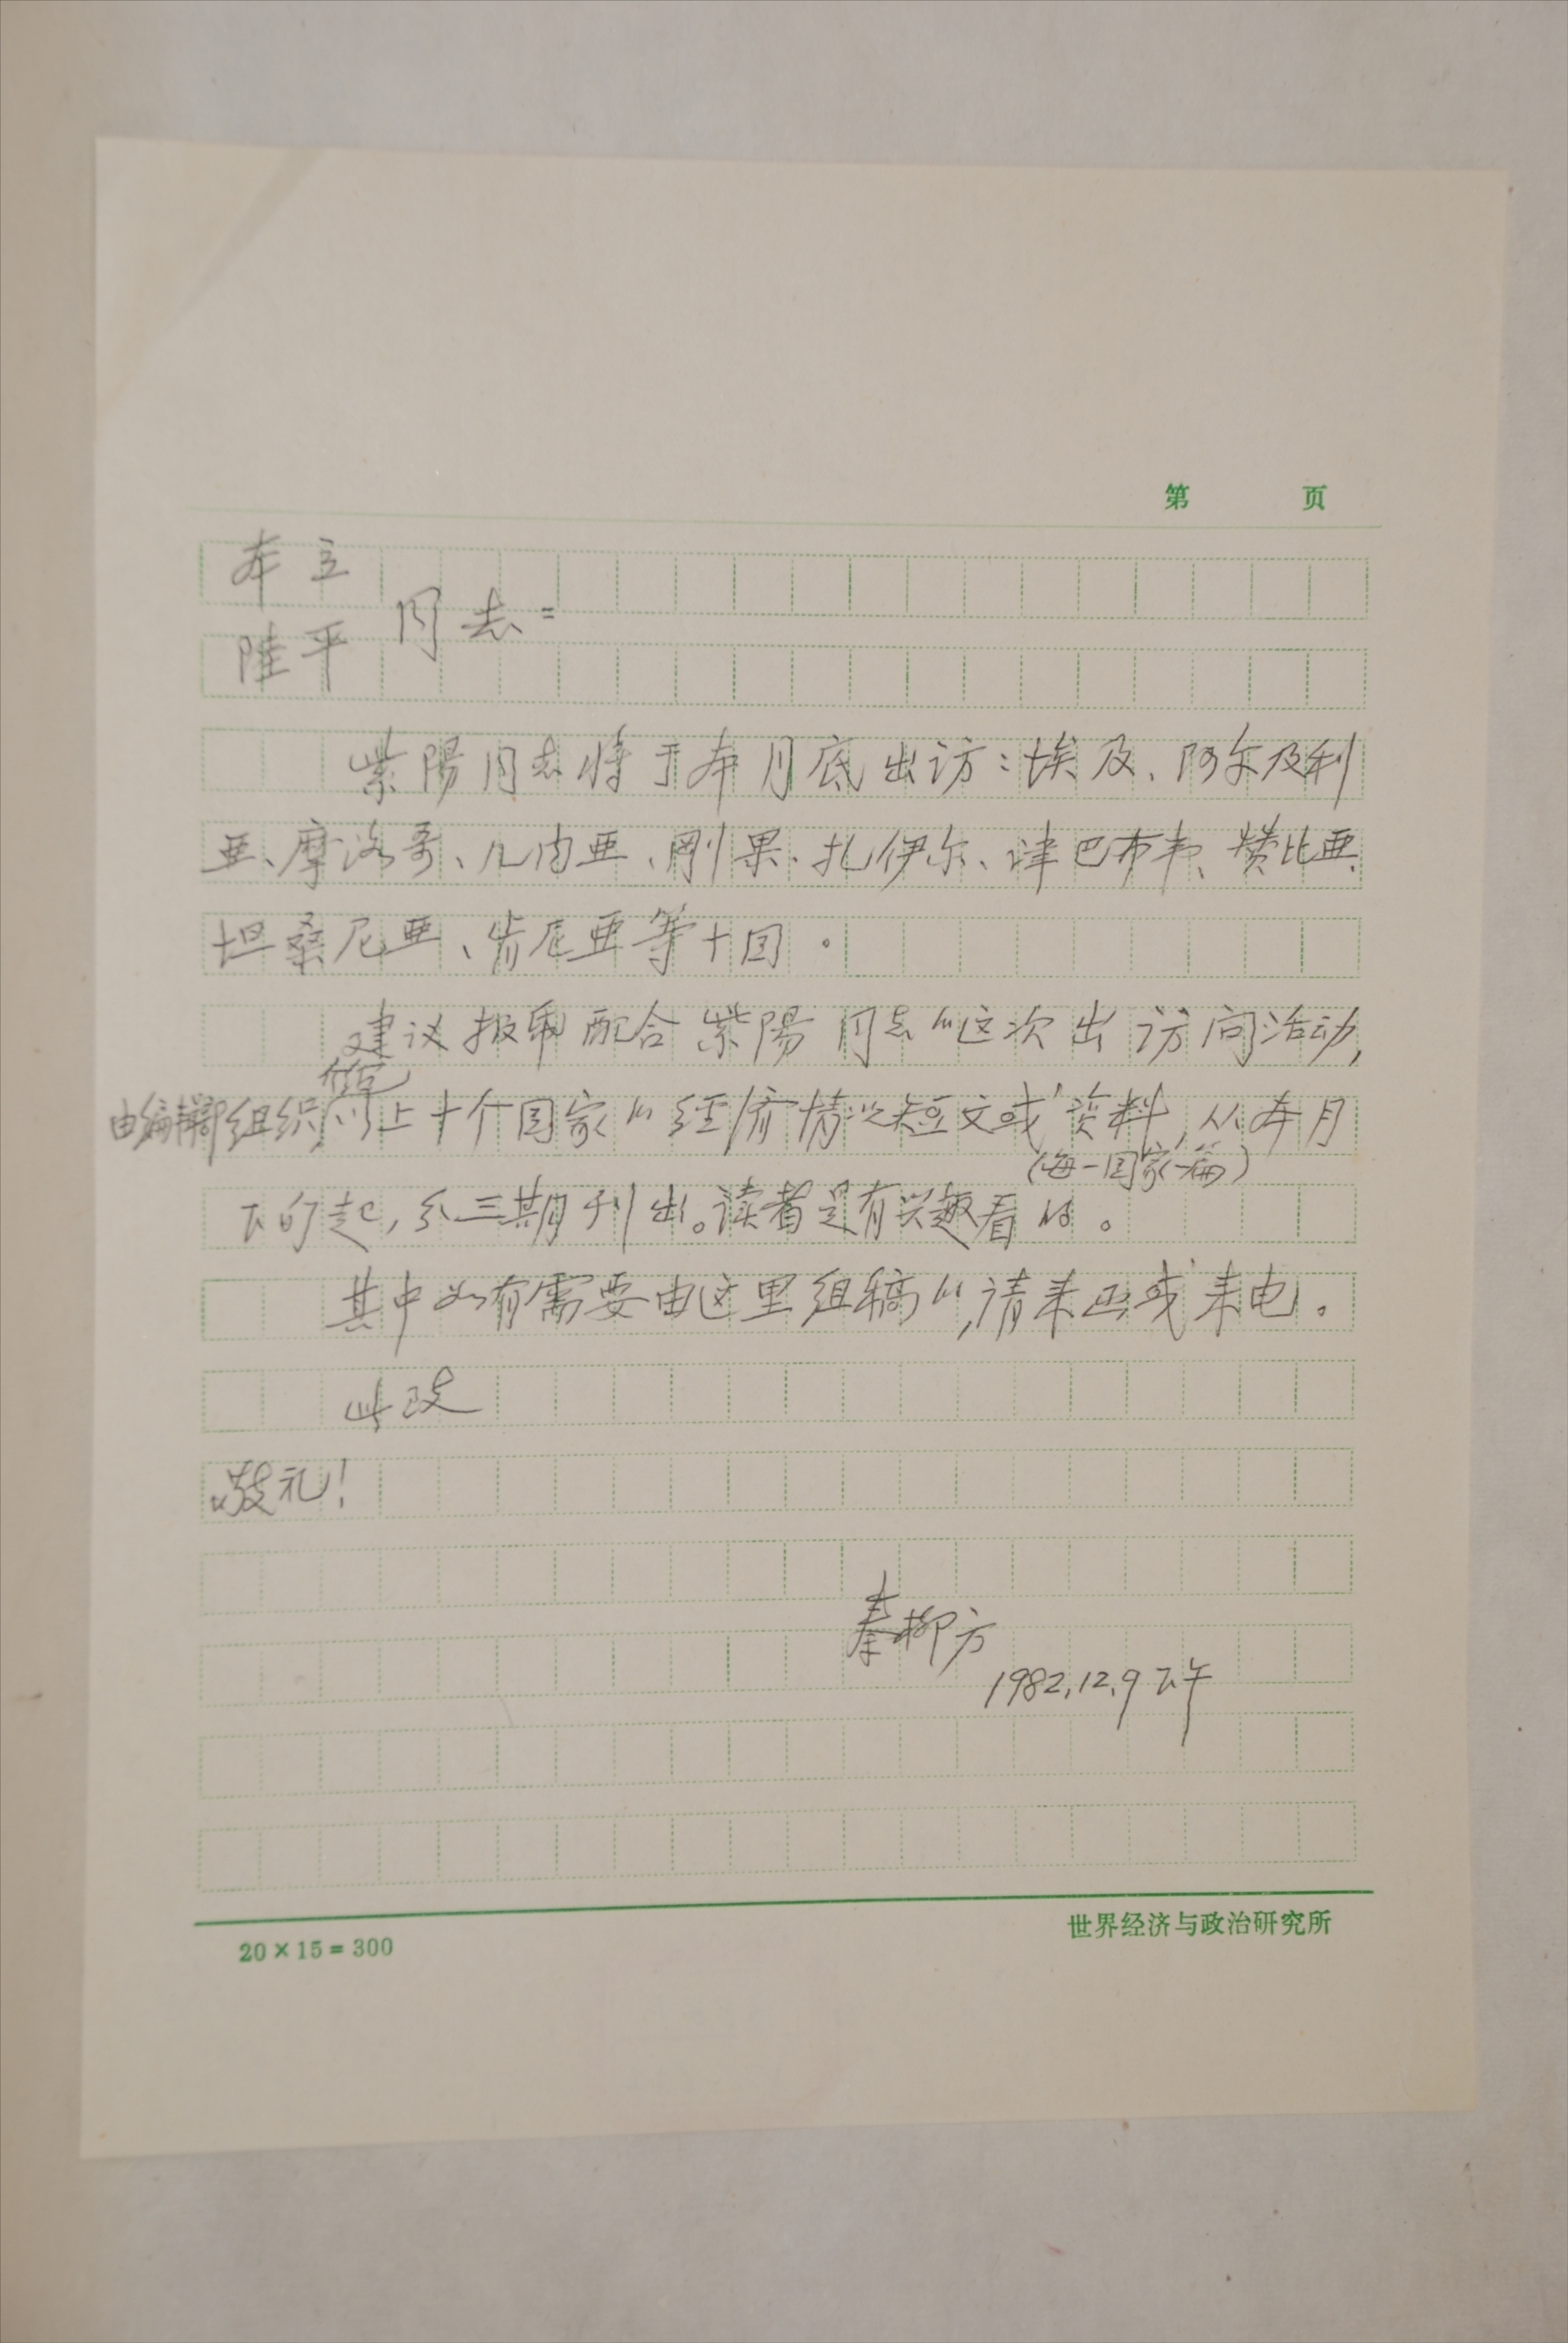 第 页
本立
同志：
陆平
紫陽同志将于本月底出访：埃及、阿尔及利
亚、摩洛哥、几内亚、刚果、扎伊尔、津巴布韦、赞比亚、
坦桑尼亚、肯尼亚等十国。
建议报帋配合紫陽同志的这次出访问活动，
由编辑部组织以上十个国家的经济情况短文或资料，从本月
（每一国家一篇）
下旬起，分三期刊出。读者是有兴趣看的。
其中如有需要由这里组稿的，请来函或来电。
此致
敬礼！
秦柳方
1982.12.9下午
20×15=300
世界经济与政治研究所